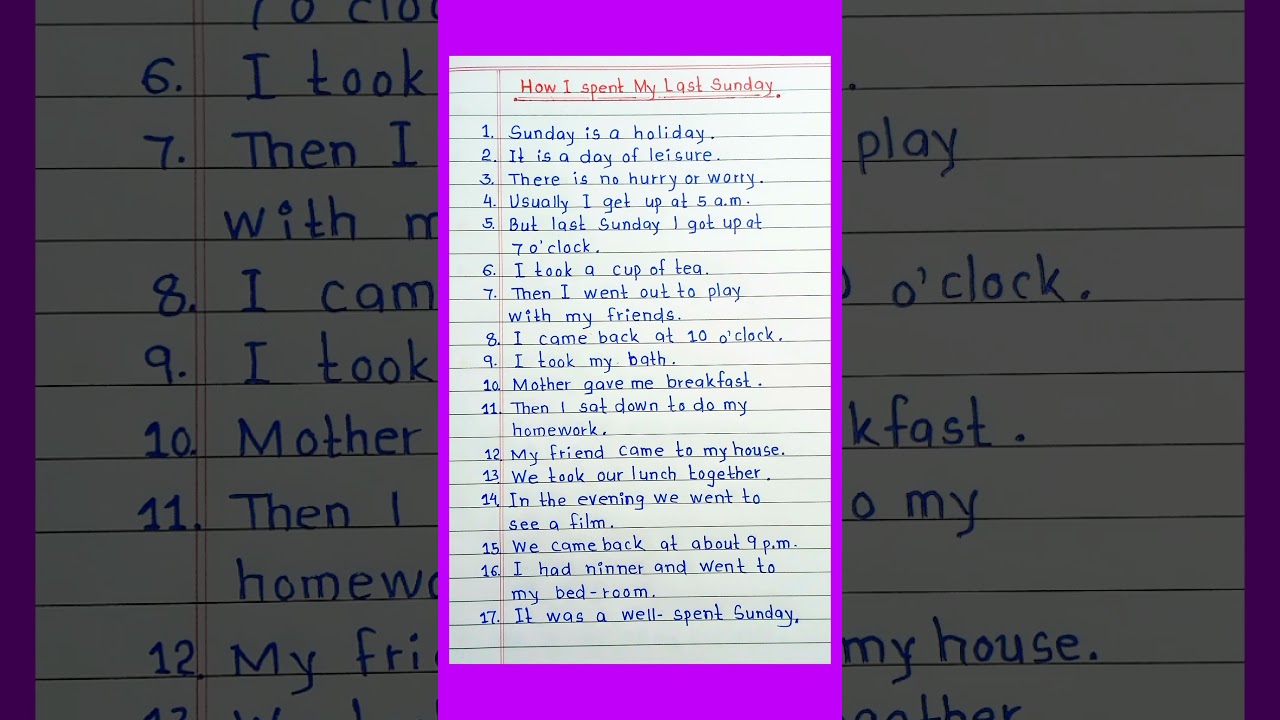 How I spent My Last Sunday.
1. Sunday is a holiday.
2. It is a day of leisure.
3. There is no hurry or worry.
4. Usually I get up at 5 a.m.
5. But last Sunday I got up at
7 o'clock.
6. I took a cup of tea.
7. Then I went out to play
with my friends.
8. I came back at 10 o'clock.
9. I took my bath.
10. Mother gave me breakfast.
11. Then I sat down to do my
homework.
12. My friend came to my house.
13. We took our lunch together.
14. In the evening we went to
see a film.
15. We came back at about 9 p.m.
16. I had ninner and went to
my bed-room.
17. It was a well-spent Sunday.
6. I took
7. Then I
with m
8. I cam
9. I took
10. Mother
11. Then I
homewo
12. My fri
play
o'clock.
kfast.
o my
my house.